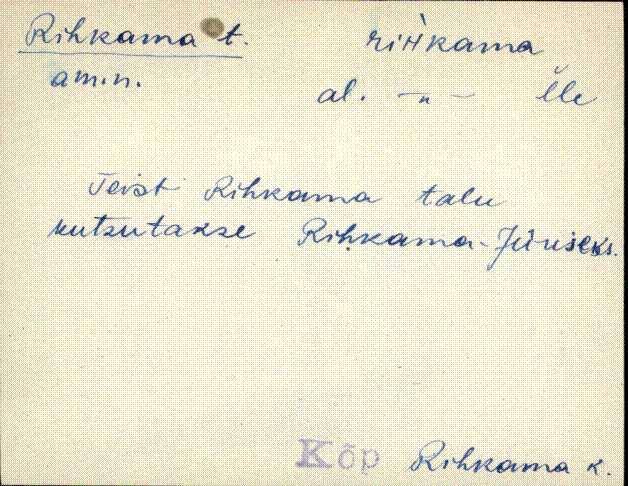 Rihkama t. riHkama
amin. al. -"- lle
Teist Rihkama talu
kutsutakse Rihkama-Jüriseks.
Kõp Rihkama k.